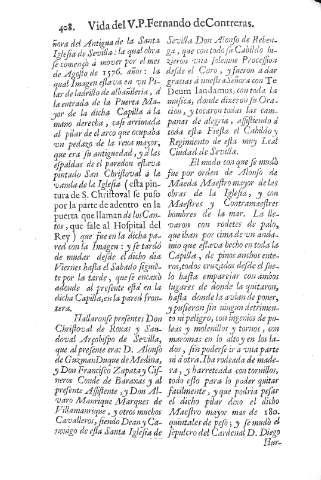 408. Vida del V.P. Fernando de Contreras.
ñora del Antigua de la Santa
Iglesia de Sevilla: la qual obra
se començò à mover por el mes
de Agosto de 1576. años: la
qual Imagen estava en un Pi-
lar de ladrillo de albañileria, à
la entrada de la Puerta Ma-
yor de la dicha Capilla à la
mano derecha, casi arrimada
al pilar de arco que ocupaba
un pedazo de la rexa mayor,
que era su antiguedad, y à las
espaldas de el paredon estava
pintado San Christoval à la
vanda de la Iglesia (esta pin-
tura de S. Christoval se puso
por la parte de adentro en la
puerta que llaman de los Can-
tos, que sale al Hospital del
Rey) que fue en la dicha pa-
red con la Imagen: y se tardò
de mudar desde el dicho dia
Viernes hasta el Sabado siguiē-
te por la tarde, que se encaxò
adonde al presente està en la
dicha Capilla, en la pared fron-
tera.
Hallaronse presentes: Don
Christoval de Roxas y San-
doval Arçobispo de Sevilla,
que al presente era: D. Alonso
de Guzman Duque de Medina,
y Don Francisco Zapata y Cis-
neros Conde de Baraxas y al
presente Assistente, y Don Al-
varo Manrique Marques de
Villamanrique, y otros muchos
Cavalleros, siendo Dean y Ca-
nonigo de esta Santa Iglesia de
Sevilla Don Alonso de Reben-
ga, que con todo su Cabildo hi-
zieron una solemne Procession
desde el Coro, y fueron à dar
gracias à nuestra Señora con Te
Deum laudamos, con toda la
musica, donde dixeron su Ora-
cion, y tocaron todas las cam-
panas de alegria, assistiendo à
toda esta Fiesta el Cabildo y
Regimiento de esta muy Leal
Ciudad de Sevilla.
El modo con que se mudò
fue por orden de Alonso de
Maeda Maestro mayor de las
obras de la Iglesia, y con
Maestres y Contramaestres
hombres de la mar. La lle-
varon con rodetes de palo,
que iban por cima de un anda-
mio que estava hecho en toda la
Capilla, de pinos anchos ente-
ros, todos cruzados desde el sue-
lo hasta emparejar con ambos
lugares de donde la quitaron,
hasta donde la avian de poner,
y pusieron sin ningun detrimen-
to ni peligro, con ingenios de po-
leas y molenillos y tornos, con
maromas en lo alto y en los la-
dos, sin poderse ir à una parte
ni à otra. Iba rodeada de made-
ra, y barreteada con tornillos,
todo esto para lo poder quitar
facilmente, y que podria pesar
el dicho pilar dixo el dicho
Maestro mayor mas de 180.
quintales de peso; y se mudò el
sepulcro del Cardenal D. Diego
Hur-